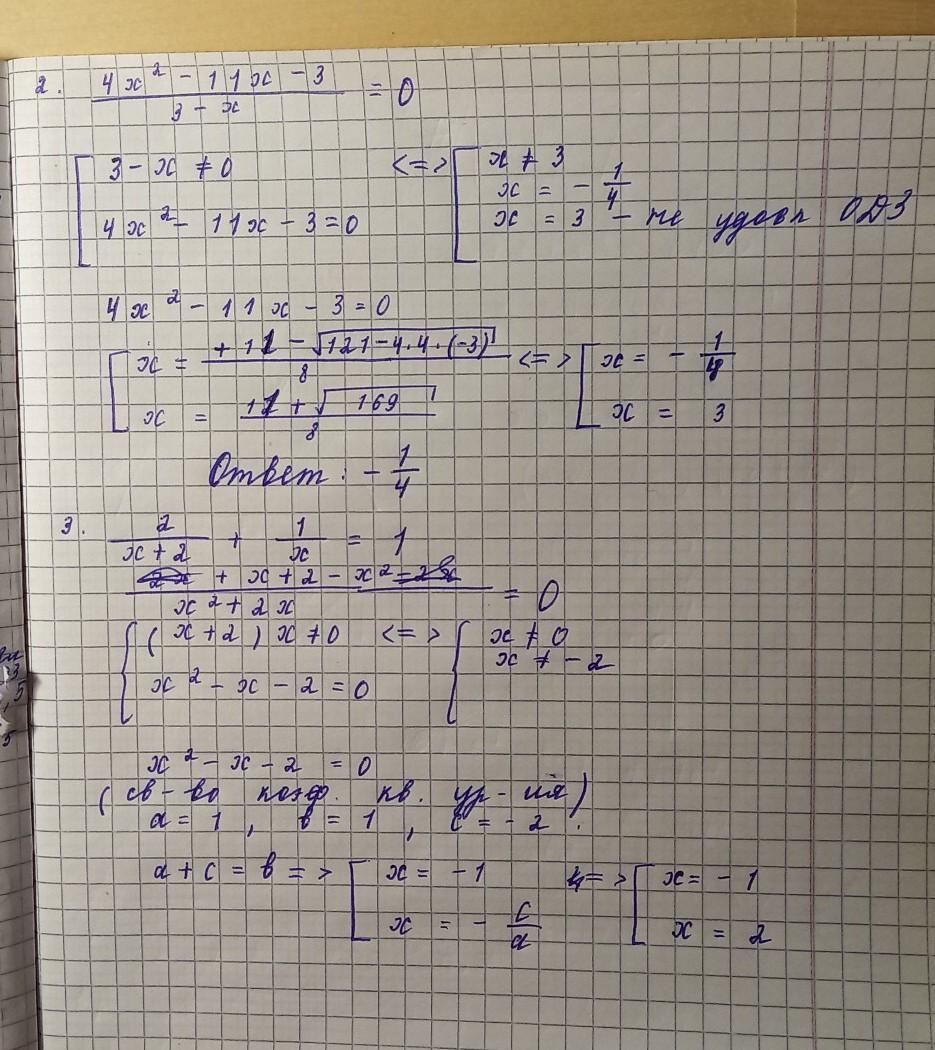 2. (4x² - 11x - 3)/(3 - x) = 0
[ 3 - x ≠ 0 <=> [ x ≠ 3
x = - 1/4
4x² - 11x - 3 = 0 x = 3 - не удовл ОДЗ
4x² - 11x - 3 = 0
[ x = (+11 - √(121 - 4·4·(-3)))/8 <=> [ x = - 1/4
x = (11 + √169)/8 x = 3
Ответ: - 1/4
3. 2/(x + 2) + 1/x = 1
(2x + x + 2 - x² - 2x)/(x² + 2x) = 0
{ (x + 2) x ≠ 0 <=> { x ≠ 0
x ≠ - 2
x² - x - 2 = 0
x² - x - 2 = 0
(св-во коэф. кв. ур-ия)
a = 1, в = 1, c = - 2.
a + c = в => [ x = - 1 <=> [ x = - 1
x = - c/a x = 2